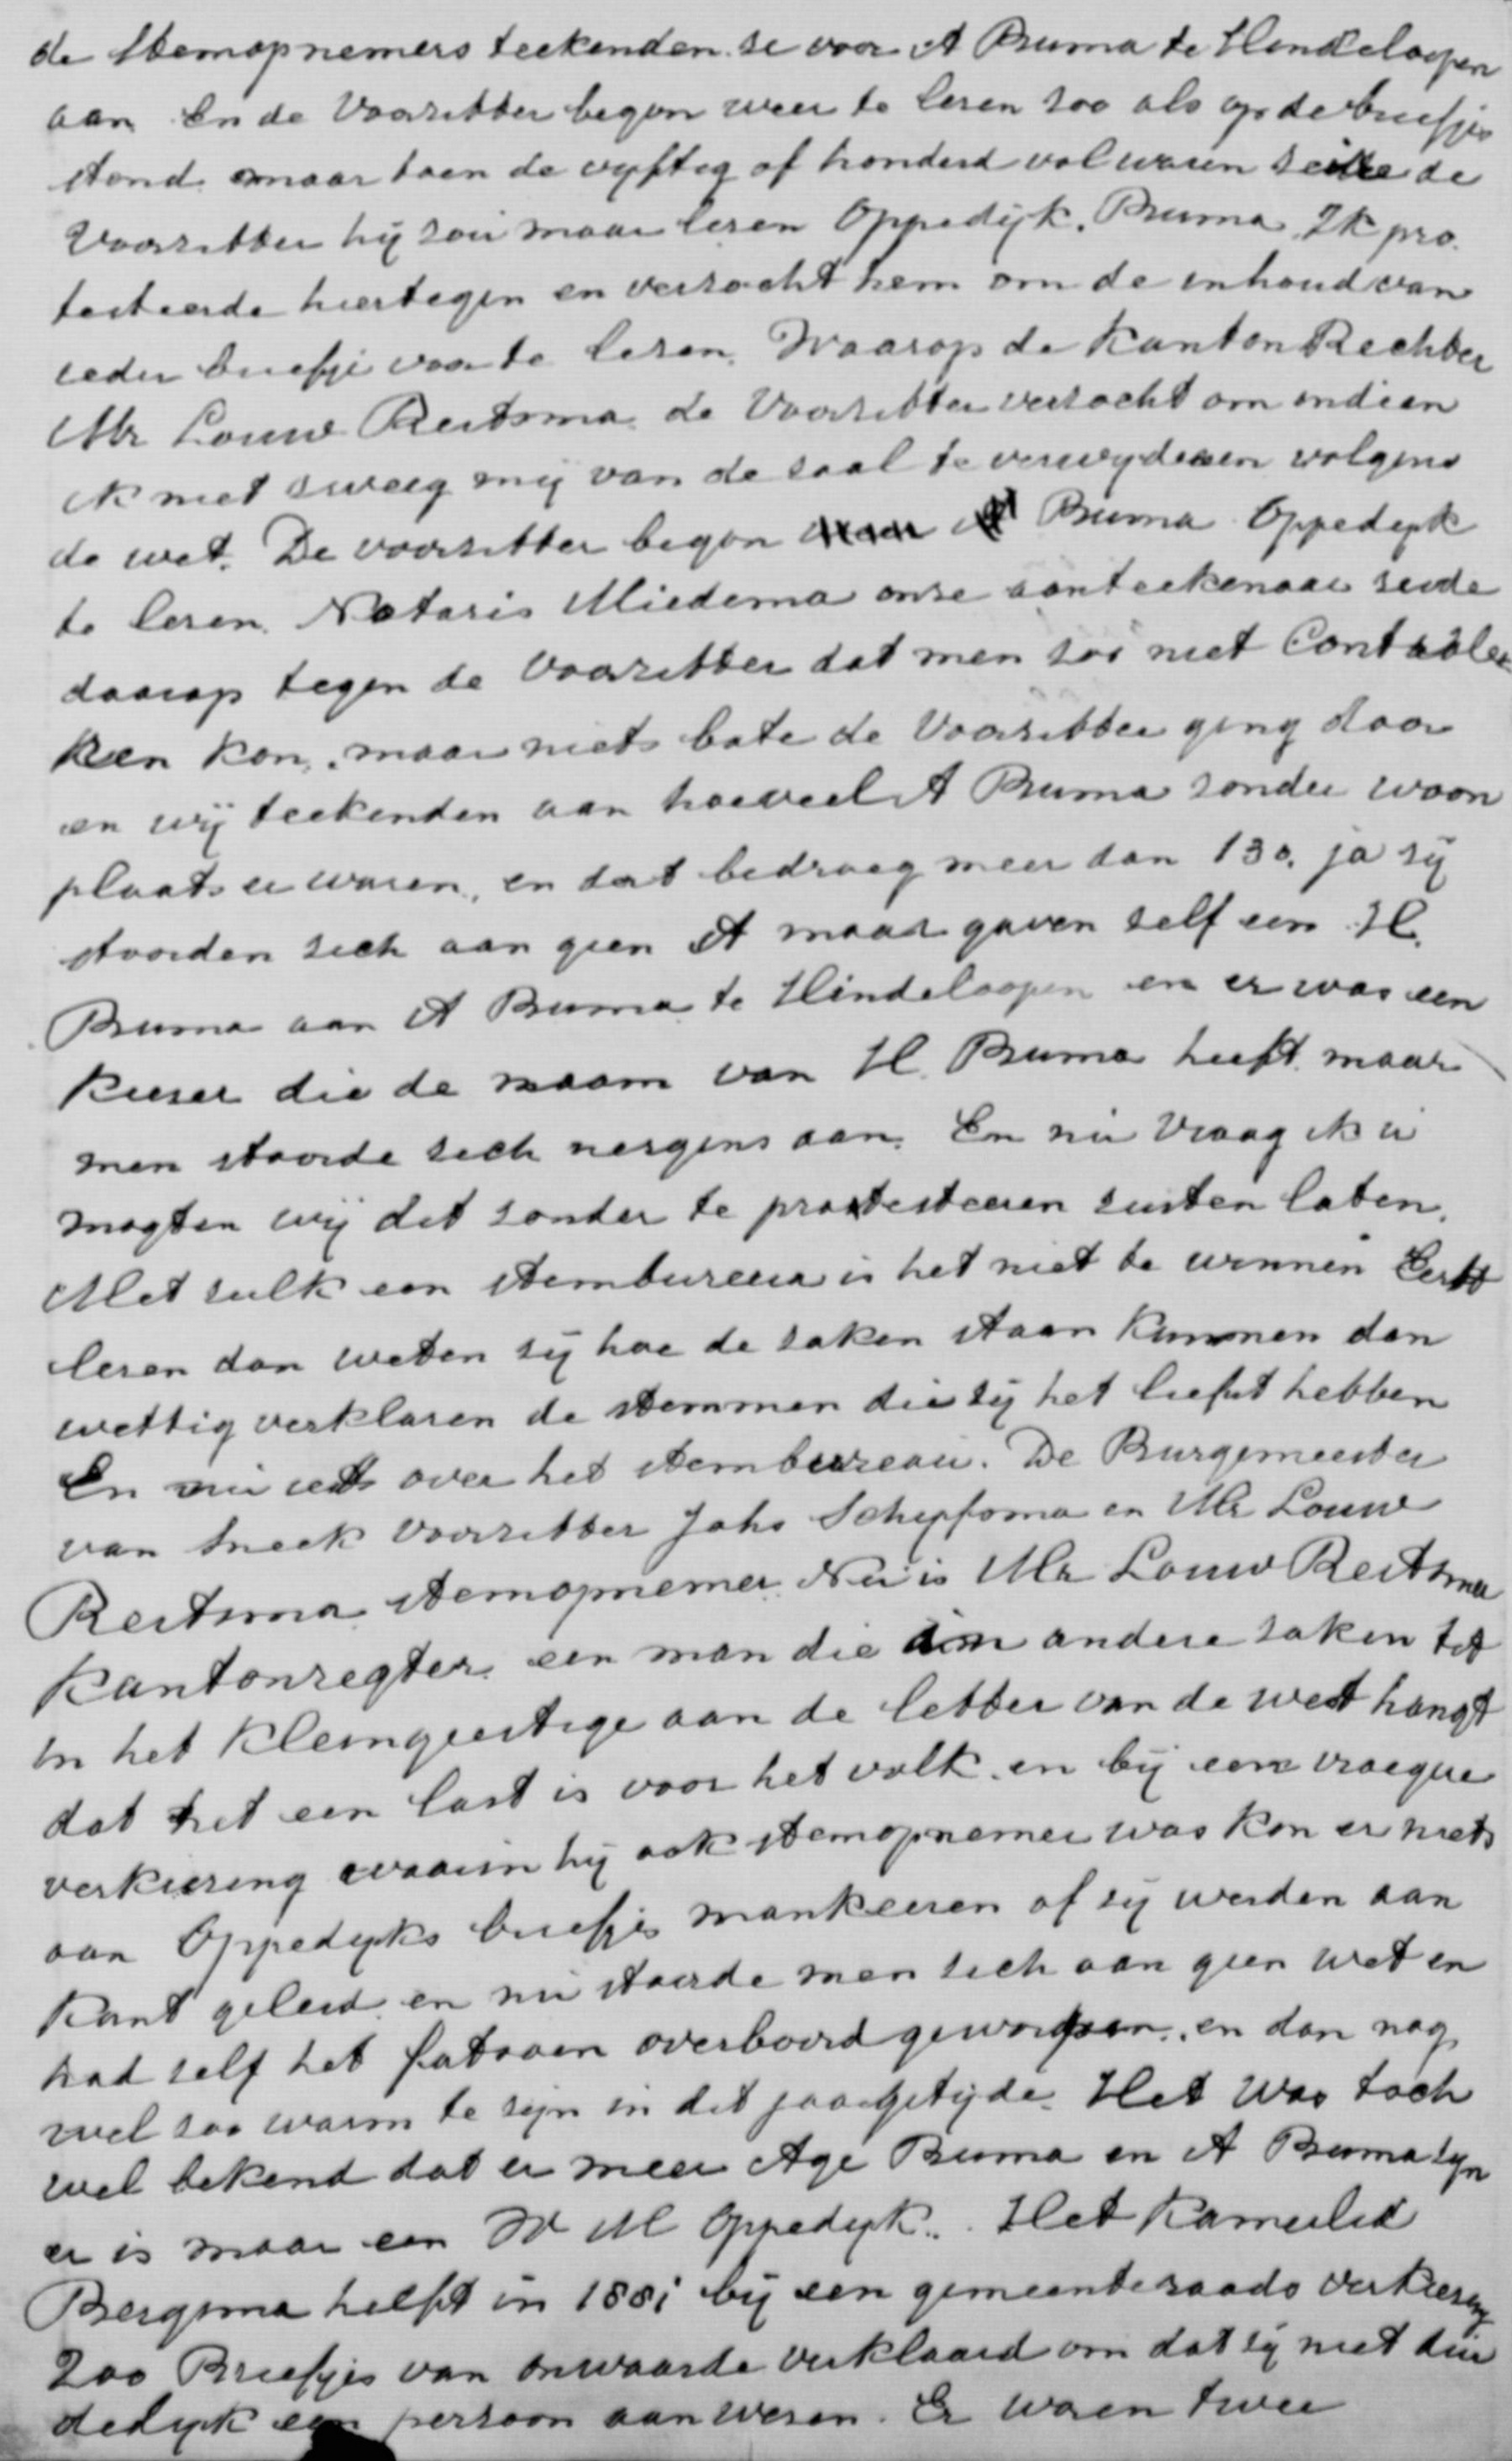 de stemopnemers teekenden se voor A Buma te Hindeloopen
aan. En de Voorsitter begon weer te lesen soo als op de briefjes
stond. maar toen de vyftig of honderd vol waren seide de
Voorsitter hij sou maar lesen Oppedijk. Buma Ik pro
testeerde hiertegen en versocht hem om de inhoud van
ieder briefje voor te lesen. Waarop de Kanton Rechter
Mr Louw Reitsma de Voorsitter versocht om indien
ik niet sweeg mij van de saal te verwyderen volgens
de wet. De voorsitter begon Buma Oppedyk
te lesen. Notaris Miedema onse aanteekenaar seide
daarop tegen de Voorsitter dat men soo niet Controle
ren kon, maar niets bate de Voorsitter ging door
en wij teekenden aan hoeveel A Buma sonder woon
plaats er waren, en dat bedroeg meer dan 130. ja sij
stoorden sich aan geen A maar gaven self een H.
Buma aan A Buma te Hindeloopen en er was een
kieser die de naam van H. Buma heeft maar
men stoorde sich nergens aan. En nu Vraag ik u
mogten wij dit sonder te protesteeren suiten laten.
Met sulk een stembureau is het niet te winnen Eerst
lesen dan weten sij hoe de saken staan kunnen dan
wettig verklaren de stemmen die sij het liefst hebben
En nu iets over het stembureau. De Burgemeester
van Sneek Voorsitter Johs Schijfsma en Mr Louw
Reitsma stemopnemer. Nu is Mr Louw Reitsma
Kantonregter. een man die in andere saken tot
in het kleingeestige aan de letter van de wet hangt
dat het een last is voor het volk. en bij een vroegere
verkiesing waarin hij ook stemopnemer was kon er niets
aan Oppedyks briefjes mankeeren of sij werden aan
kant geleid. en nu stoorde men sich aan geen wet en
had self het fatsoen overboord geworpen. en dan nog
wel soo warm te sijn in dit jaargetijde. Het was toch
wel bekend dat er meer Age Buma en A Buma syn
er is maar een W M Oppedyk. Het Kamerlid
Bergsma heeft in 1881 bij een gemeenteraads verkiesing
200 Briefjes van onwaarde verklaard om dat sij niet dui
delyk een persoon aanwesen. Er waren twee